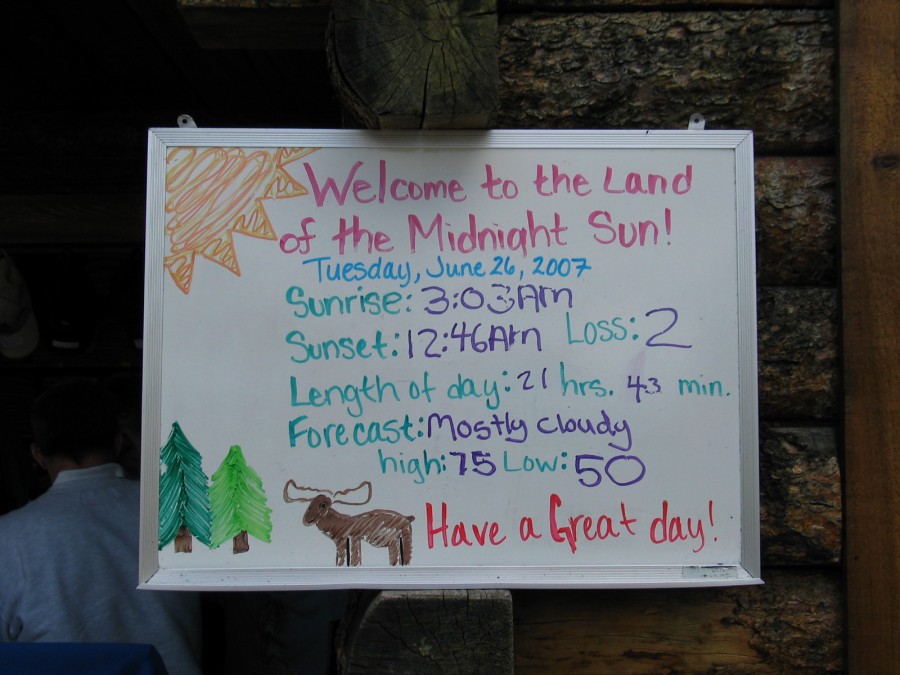 Welcome to the Land
of the Midnight Sun!
Tuesday, June 26, 2007
Sunrise: 3:03Am
Sunset: 12:46Am Loss: 2
Length of day: 21 hrs. 43 min.
Forecast: Mostly cloudy
high: 75 Low: 50
Have a Great day!